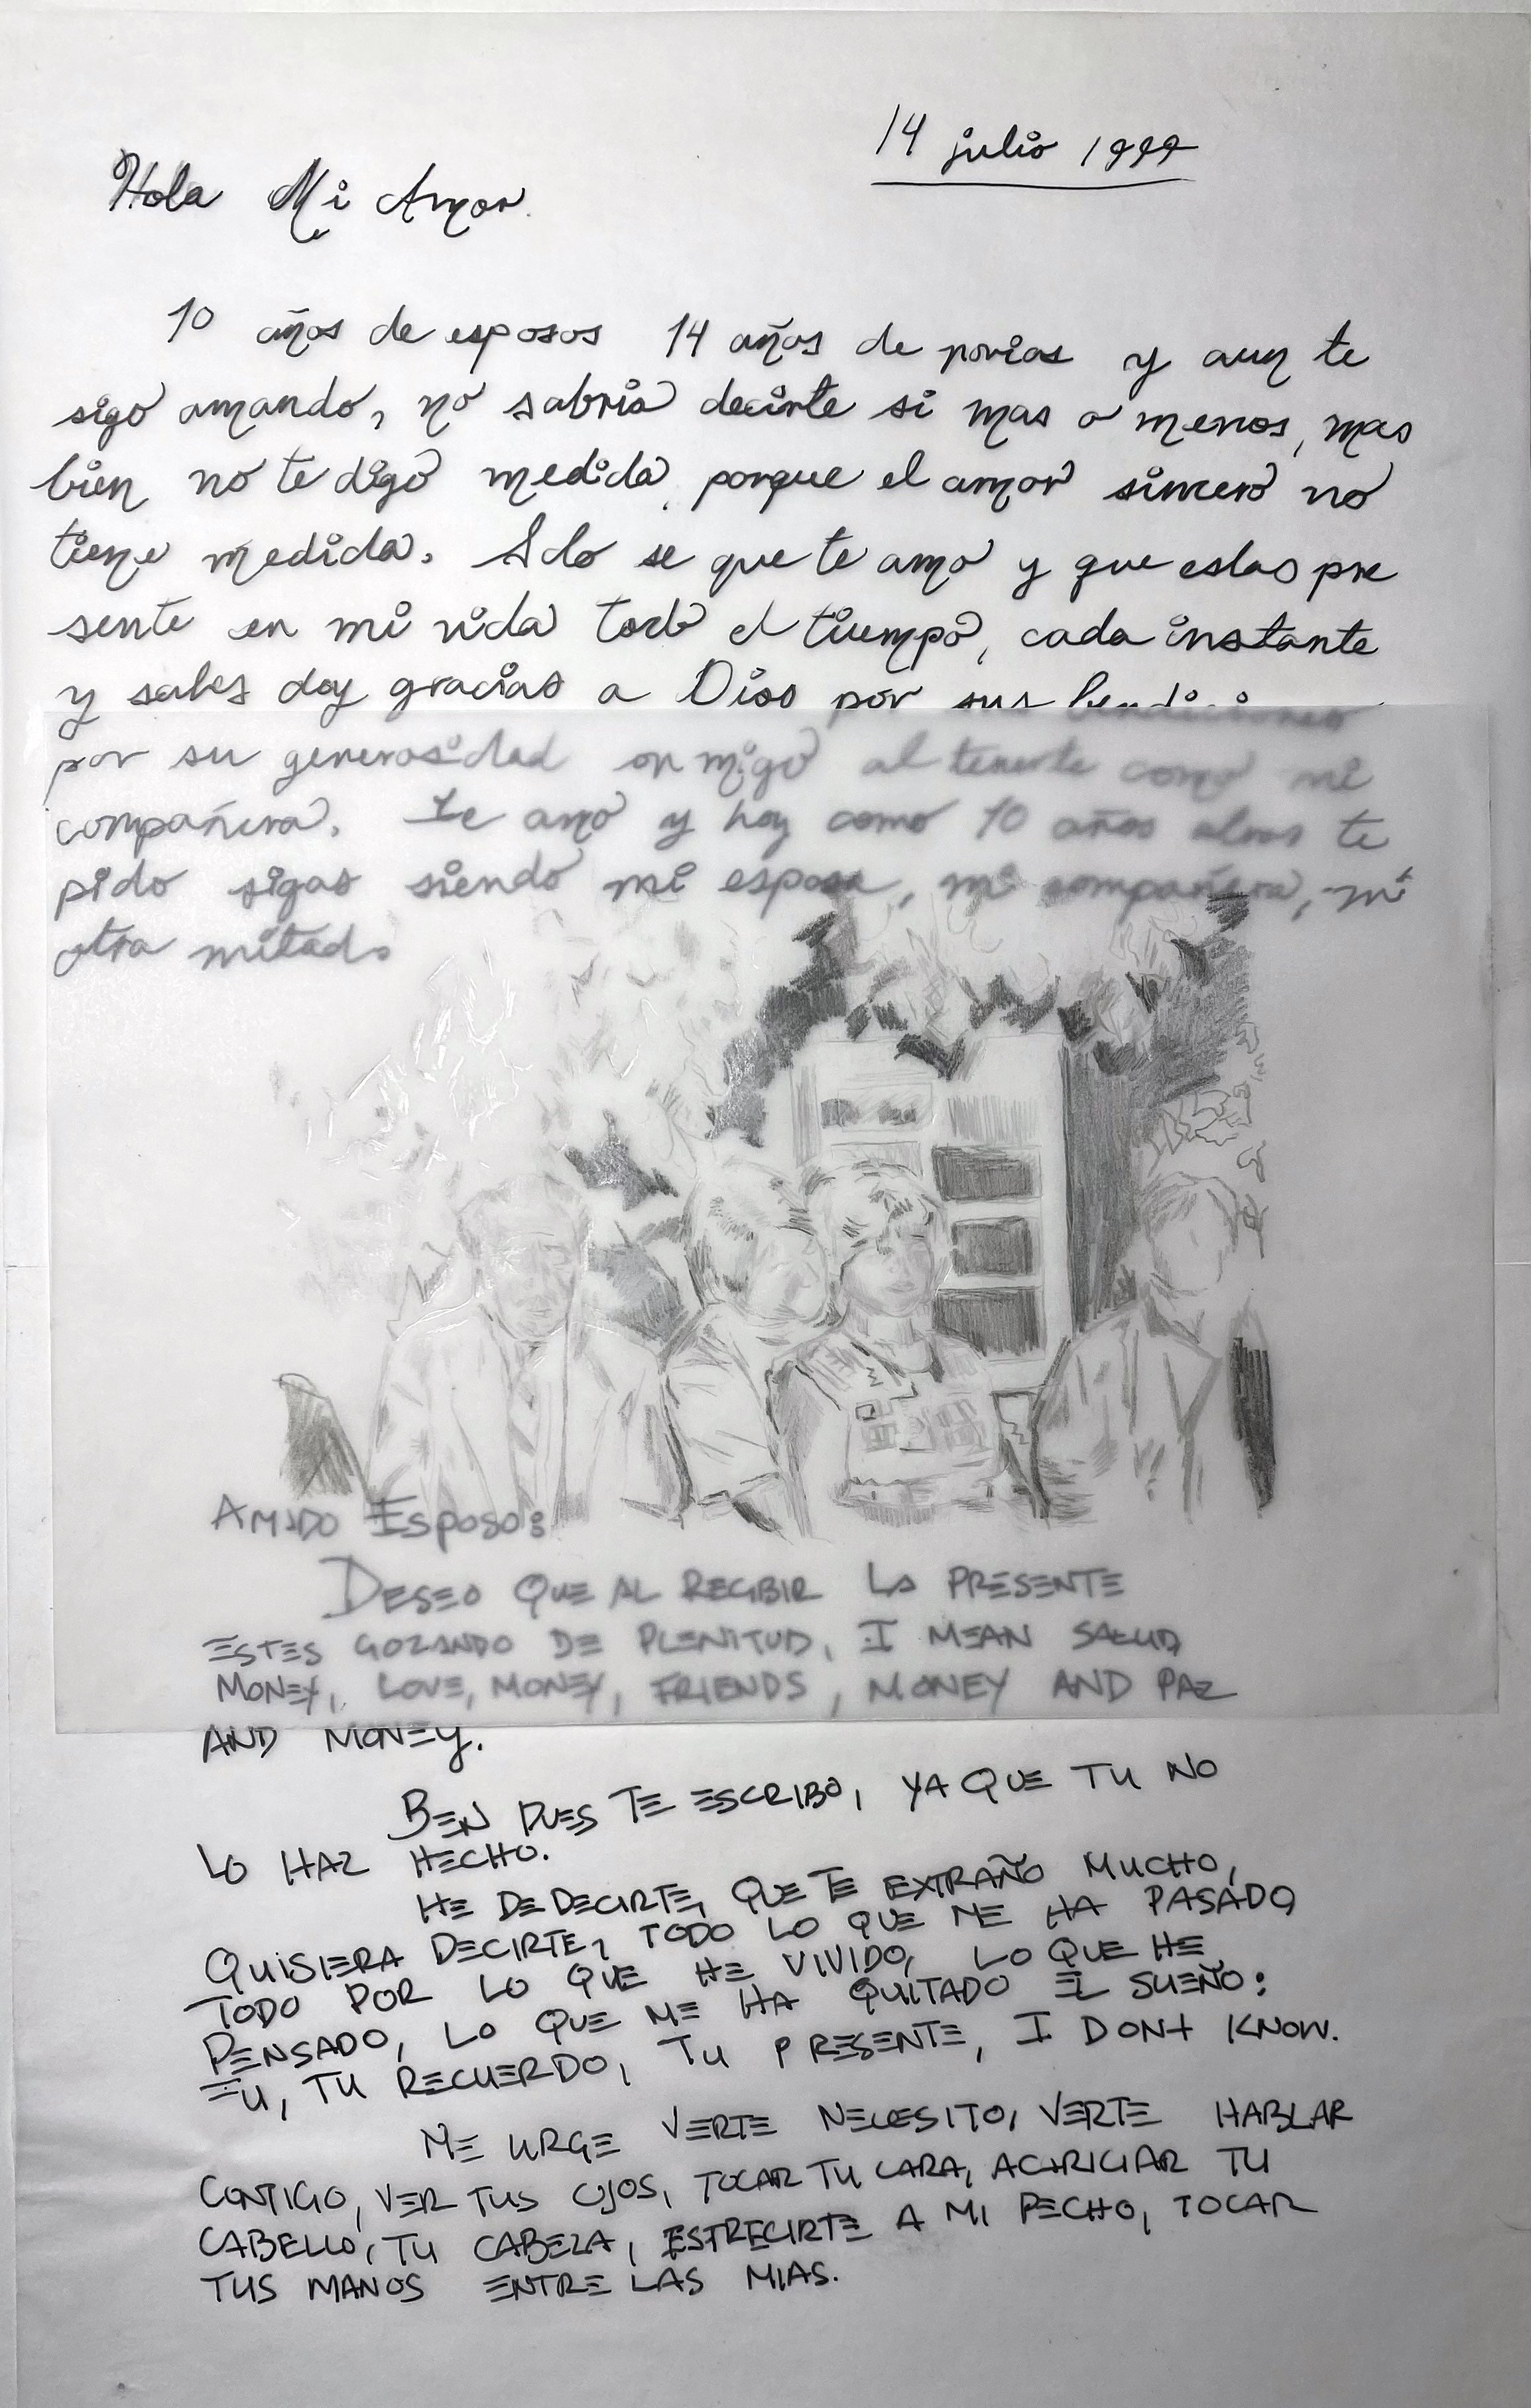 14 julio 1999
Hola Mi Amor.
10 años de esposos 14 años de novios y aun te
sigo amando, no sabria decirte si mas o menos, mas
bien no te digo medida, porque el amor sincero no
tiene medida. Solo se que te amo y que estas pre
sente en mi vida todo el tiempo, cada instante
y sabes doy gracias a Dios por sus bendiciones
por su generosidad onmigo al tenerte como mi
compañera. Te amo y hoy como 10 años atras te
pido sigas siendo mi esposa, mi compañera, mi
otra mitad.
AMADO ESPOSO:
DESEO QUE AL RECIBIR LA PRESENTE
ESTES GOZANDO DE PLENITUD, I MEAN SALUD
MONEY, LOVE, MONEY, FRIENDS, MONEY AND PAZ
AND MONEY.
BEN PUES TE ESCRIBO, YA QUE TU NO
LO HAZ HECHO.
HE DE DECIRTE, QUE TE EXTRAÑO MUCHO,
QUISIERA DECIRTE, TODO LO QUE ME HA PASADO,
TODO POR LO QUE HE VIVIDO, LO QUE HE
PENSADO, LO QUE ME HA QUITADO EL SUEÑO:
TU, TU RECUERDO, TU PRESENTE, I DONT KNOW.
ME URGE VERTE NECESITO, VERTE HABLAR
CONTIGO, VER TUS OJOS, TOCAR TU CARA, ACARICIAR TU
CABELLO, TU CABEZA, ESTRECIRTE A MI PECHO, TOCAR
TUS MANOS ENTRE LAS MIAS.